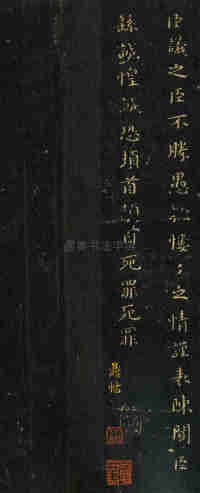 臣議之臣不勝愚款慺〻之情謹表陳聞臣
繇誠惶誠恐頓首頓首死罪死罪
鼎帖